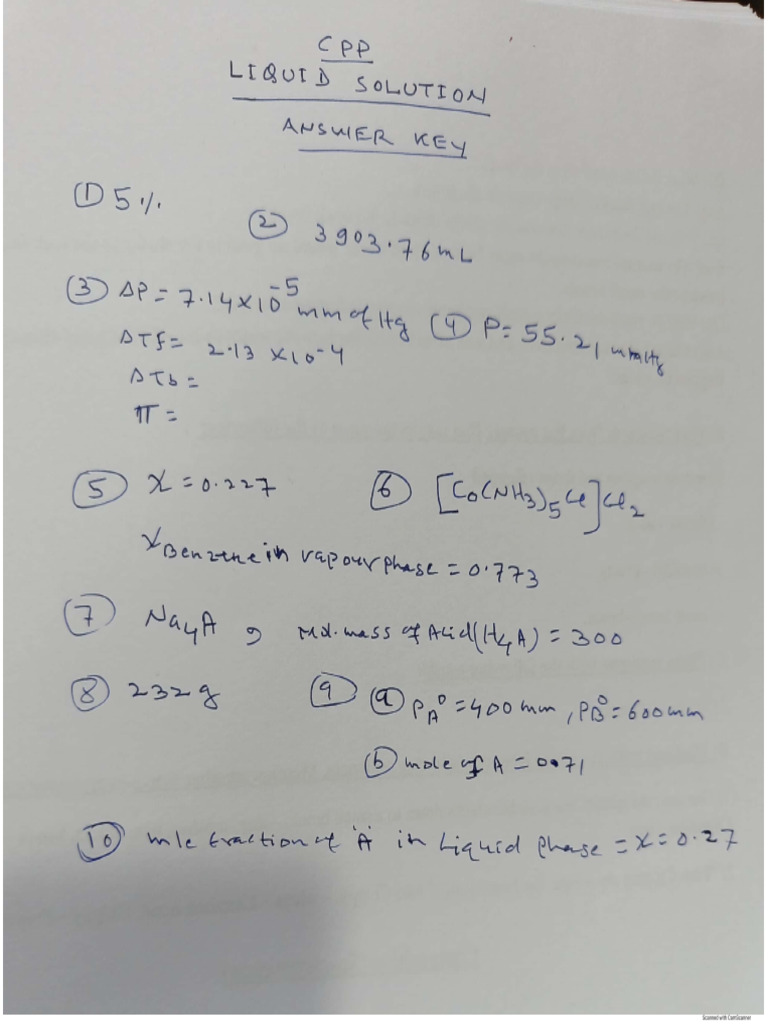 CPP
LIQUID SOLUTION
ANSWER KEY
① 5%
② 3903.76 mL
③ ΔP = 7.14×10⁻⁵ mm of Hg ④ P = 55.21 mmHg
ΔTf = 2.13 ×10⁻⁴
ΔTb =
π =
⑤ X = 0.227 ⑥ [Co(NH3)5Cl]Cl2
XBenzene in vapour phase = 0.773
⑦ Na4A , Mol. mass of Acid (H4A) = 300
⑧ 232g ⑨ ⓐ PA° = 400 mm, PB° = 600 mm
ⓑ mole of A = 0.71
⑩ mle fraction of 'A' in Liquid phase = X = 0.27
Scanned with CamScanner